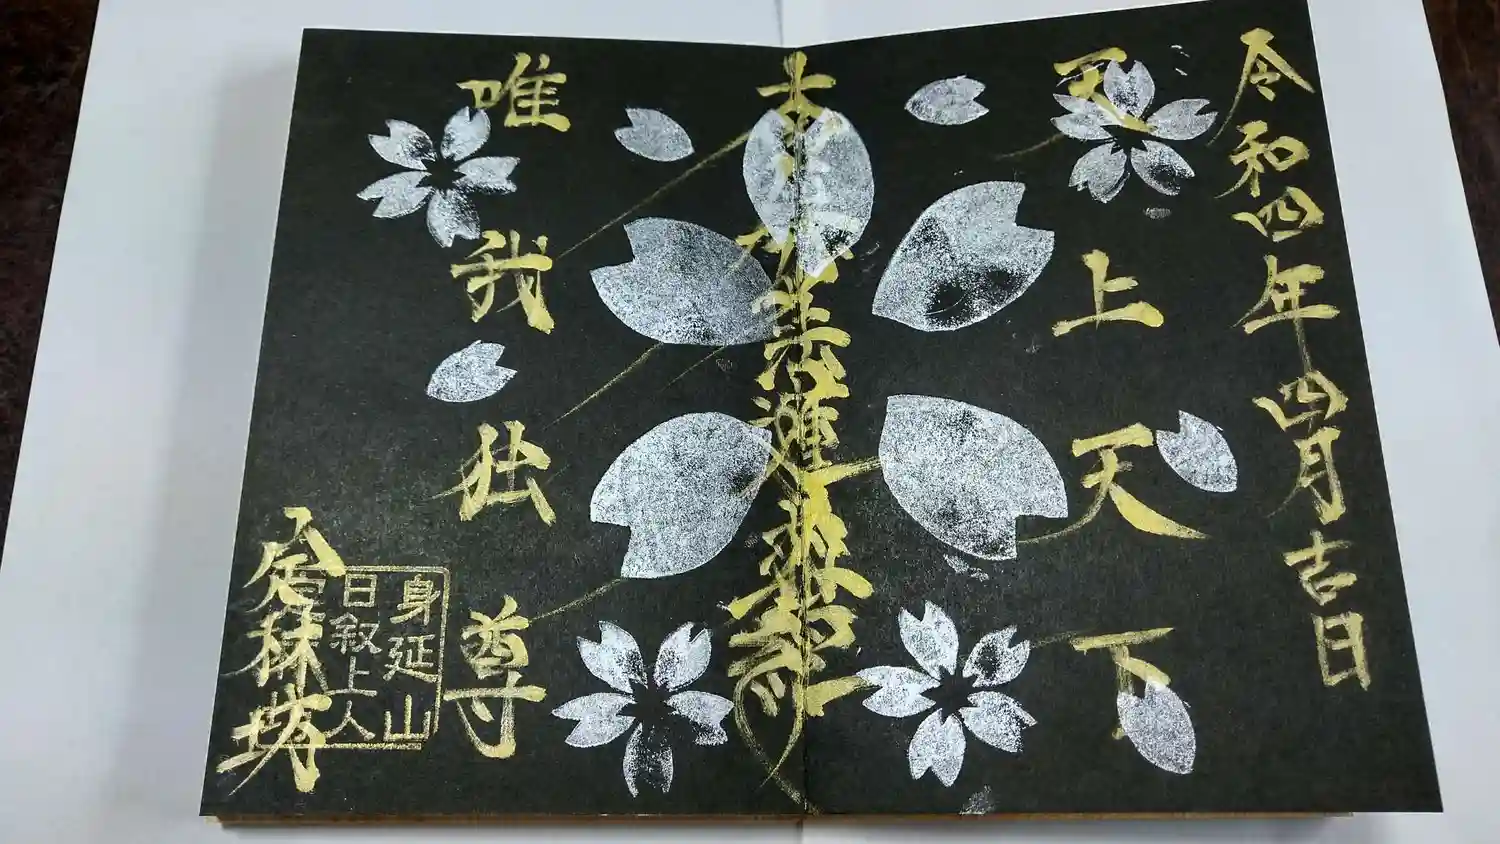 令和四年四月吉日
天上天下
南無妙法蓮華経
唯我独尊
身延山
日叙上人
定林坊